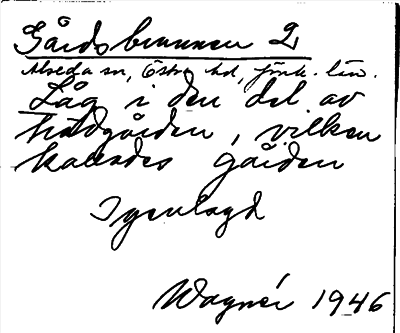 Gårdsbrunnen 2
Alseda sn, Östra hd, Jönk. län.
Låg i den del av
trädgården, vilken
kallades Gården
Igenlagd
Wagnér 1946